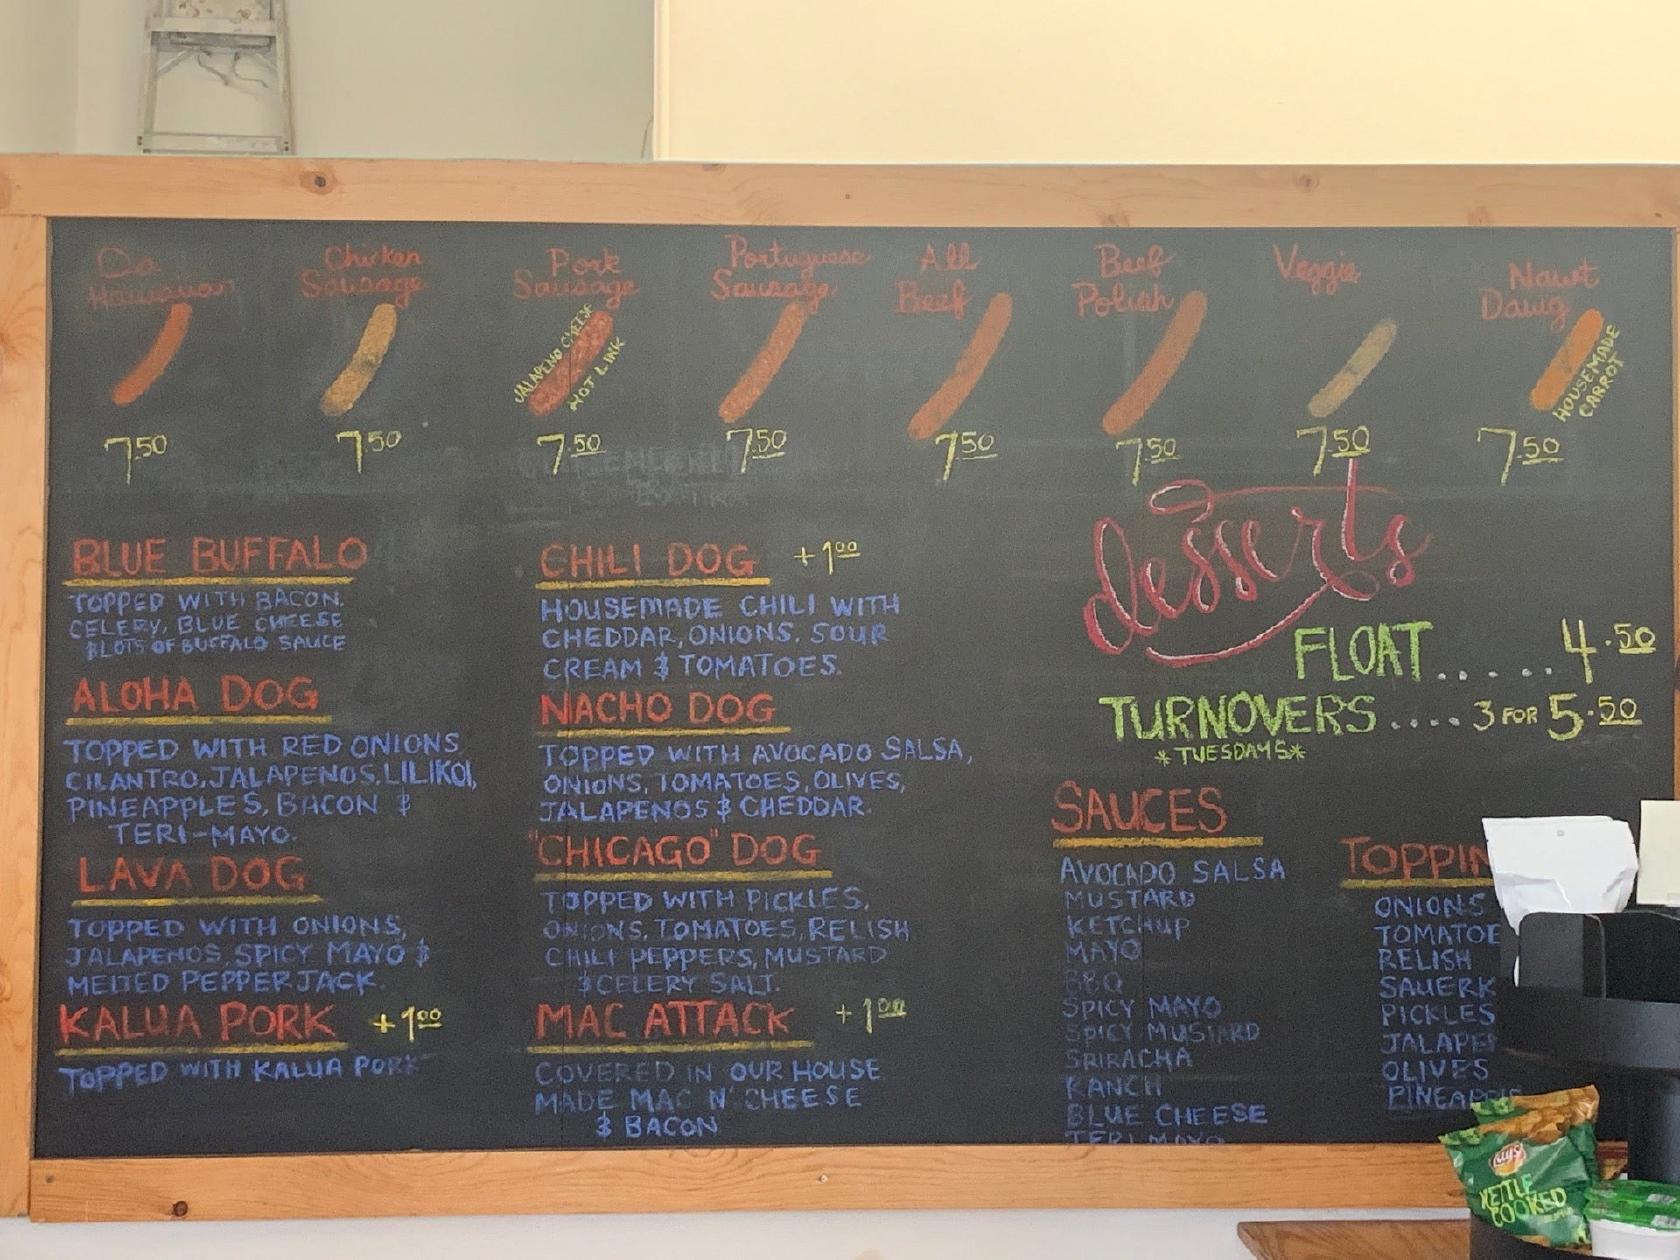 Da Hawaiian
Chicken Sausage
Pork Sausage
JALAPENO CHEESE
HOT LINK
Portuguese Sausage
All Beef
Beef Polish
Veggie
Nawt Dawg
HOUSEMADE CARROT
7.50
7.50
7.50
7.50
7.50
7.50
7.50
7.50
BLUE BUFFALO
TOPPED WITH BACON,
CELERY, BLUE CHEESE
& LOTS OF BUFFALO SAUCE
ALOHA DOG
TOPPED WITH RED ONIONS
CILANTRO, JALAPENOS, LILIKOI,
PINEAPPLES, BACON &
TERI-MAYO.
LAVA DOG
TOPPED WITH ONIONS,
JALAPENOS, SPICY MAYO &
MELTED PEPPERJACK.
KALUA PORK +1.00
TOPPED WITH KALUA PORK
CHILI DOG +1.00
HOUSEMADE CHILI WITH
CHEDDAR, ONIONS, SOUR
CREAM & TOMATOES.
NACHO DOG
TOPPED WITH AVOCADO SALSA,
ONIONS, TOMATOES, OLIVES,
JALAPENOS & CHEDDAR.
"CHICAGO" DOG
TOPPED WITH PICKLES,
ONIONS, TOMATOES, RELISH
CHILI PEPPERS, MUSTARD
& CELERY SALT.
MAC ATTACK +1.00
COVERED IN OUR HOUSE
MADE MAC N' CHEESE
& BACON
desserts
FLOAT...... 4.50
TURNOVERS.... 3 FOR 5.50
*TUESDAYS*
SAUCES
AVOCADO SALSA
MUSTARD
KETCHUP
MAYO
BBQ
SPICY MAYO
SPICY MUSTARD
SRIRACHA
RANCH
BLUE CHEESE
TERI MAYO
TOPPIN
ONIONS
TOMATOE
RELISH
SAUERK
PICKLES
JALAPE
OLIVES
PINEAPPLE
Lay's
KETTLE
COOKED